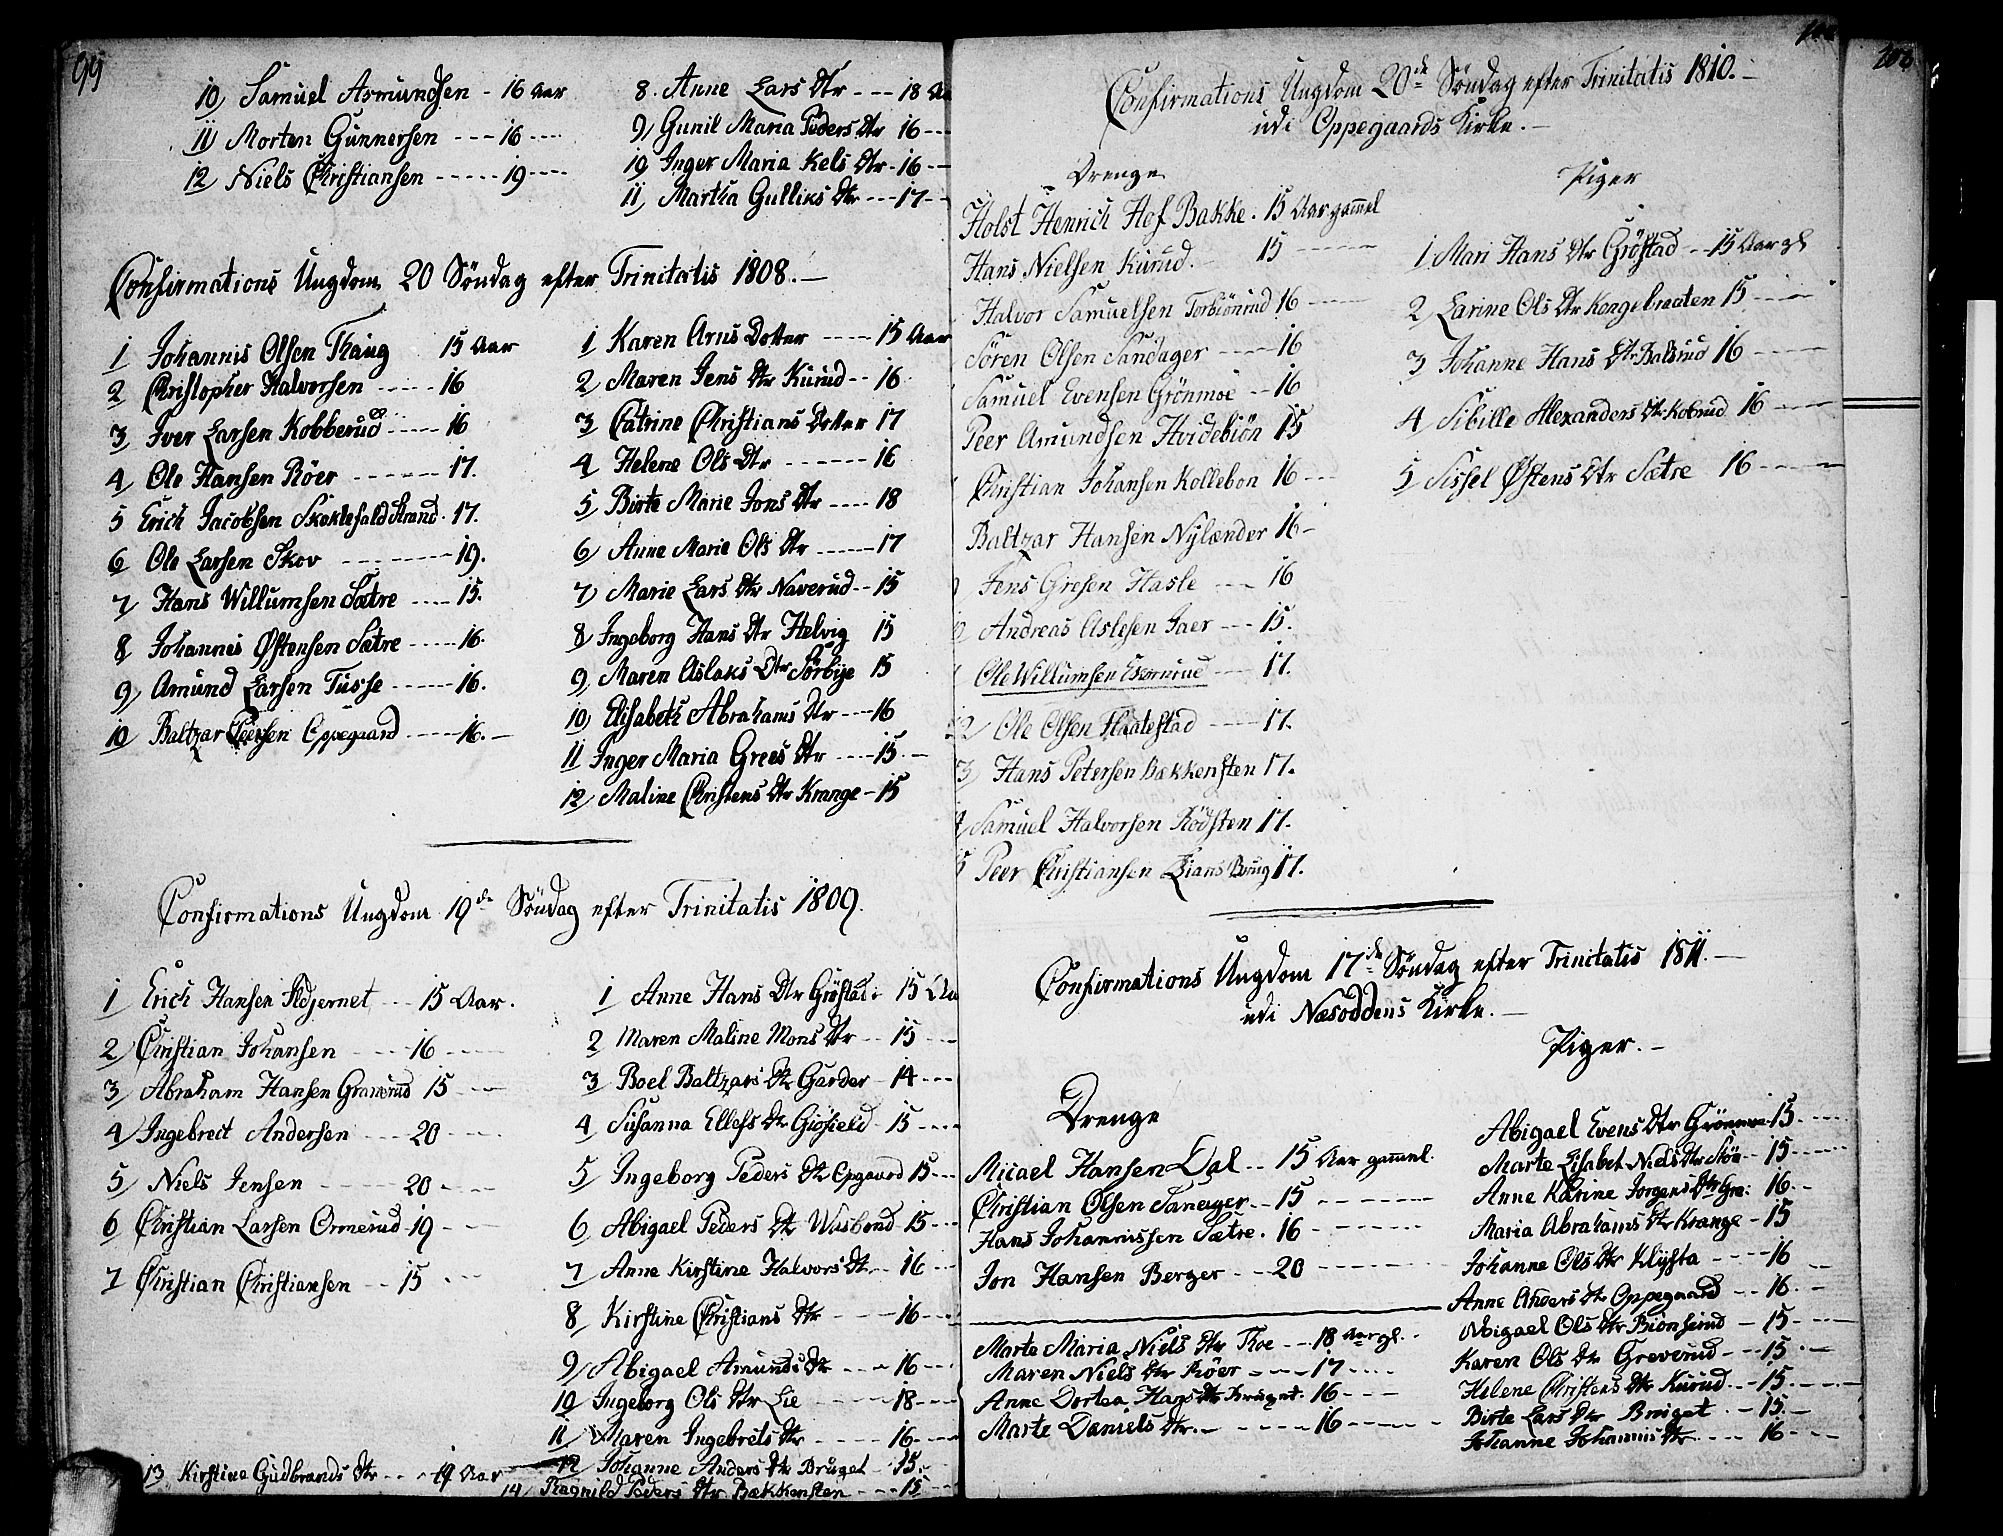 99
10 Samuel Asmundsen - 16 Aar
11 Morten Gunnersen --- 16 ----
12 Niels Christiansen ----- 19 ----
8. Anne Lars Dtr --- 18 Aa
9 Gunil Maria Peders Dtr 16 ---
10 Inger Maria Kels Dtr - 16 ---
11 Martha Gulliks Dtr --- 17 --
Confirmations Ungdom 20 Söndag efter Trinitatis 1808. —
1 Johannis Olsen Thaug 15 Aar
2 Christopher Halvorsen ----- 16
3 Iver Larsen Kobberud ----- 16
4 Ole Hansen Röer ------- 17.
5 Erich Jacobsen Skoklefald Strand. 17.
6 Ole Larsen Skov --------- 19.
7 Hans Willumsen Sætre ---- 15.
8 Johannes Østensen Sætre ----- 16.
9 Amund Larsen Tusse ------ 16.
10 Baltzar Oppegaard ----- 16. —
1 Karen Arns Dotter ----- 15 Aar
2 Maren Jens Dtr Kurud -- 16
3 Catrine Christians Dotter 17
4 Helene Ols Dtr ------- 16
5 Birte Marie Jons Dtr ---- 18
6 Anne Marie Ols Dtr ------ 17
7 Marie Lars Dtr Naverud -- 15
8 Ingeborg Hans Dtr Helvig 15
9 Maren Aslaks Dtr Sörbye 15
10 Elisabeth Abrahams Dtr --- 16
11 Inger Maria Grees Dtr ---- 15. —
12 Maline Christens Dtr Krange - 15
Confirmations Ungdom 19de Söndag efter Trinitatis 1809.
1 Erich Hansen Ildjernet --- 15 Aar.
2 Christian Johansen ---- 16 -----
3 Abraham Hansen Granerud 15 ---
4 Ingebret Andersen ---- 20 ----
5 Niels Jensen ------ 20 ----
6 Christian Larsen Ormerud - 19 ---
7 Christian Christiansen --- 15 ---
13 Kirstine Gudbrands Dtr --- 19 Aar
1 Anne Hans Dtr Gröstad 15 Aa
2 Maren Maline Mons Dtr -- 15 ---
3 Boel Baltzars Dtr Garder - 14 ---
4 Susanna Ellefs Dtr Giösield - 15 ----
5 Ingeborg Peders Dtr Opgaard 15 ---
6 Abigael Peders Dtr Wasbond 15 ---
7 Anne Kirstine Halvors Dtr -- 16 ---
8 Kirstine Christians Dtr ---- 16 ----
9 Abigael Amunds Dtr ---- 16 ---
10 Ingeborg Ols Dtr Lie ----- 18 ---
11 Maren Ingebrets Dtr ----- 16 ---
12 Johanne Anders Dtr Bruget - 15 --
14 Ragnild Peders Dtr Bækkensten --- 15 --
Confirmations Ungdom 20de Söndag efter Trinitatis 1810. —
udi Oppegaards Kirke. —
Drenge
Holst Henrich Hof Bakke. 15 Aar gammel
Hans Nielsen Kurud. 15 -----
Halvor Samuelsen Torbiönrud 16 -----
Sören Olsen Sandager ---- 16
Samuel Evensen Grönmoe -- 16
Peer Amundsen Hvidebiön 15
Christian Johansen Kollebon 16 ---
Baltzar Hansen Nylænder 16 -
Jens Gresen Hasle --- 16
Andreas Aslesen Jaer --- 15.
Ole Willumsen ---- 17.
12 Ole Olsen Flaatestad ----- 17.
3 Hans Petersen Bækkensten 17.
4 Samuel Halvorsen Rödsten 17.
5 Peer Christiansen Lians Brug 17.
Piger
1 Mari Hans Dtr Gröstad -- 15 Aar gl
2 Larine Ols Dtr Kongebraaten 15 ----
3 Johanne Hans Dtr Balsrud 16 -----
4 Sibille Alexanders Dtr Kobrud 16 ----
5 Sissel Østens Dtr Sætre 16 -----
Confirmations Ungdom 17de Söndag efter Trinitatis 1811. —
udi Næsoddens Kirke. —
Drenge
Micael Hansen Dal -- 15 Aar gammel.
Christian Olsen -- 15 -------
Hans Johannissen Sætre. 16 -------
Jon Hansen Berger --- 20 -------
Marte Maria Niels Dtr Toe --- 18 Aar gl.
Maren Niels Dtr Röer ---- 17 ----
Anne Dortea Hans Dtr Bruget 16 ----
Marte Daniels Dtr. ------ 16 ------
Piger. —
Abigael Evens Dtr Grönmoe 15. ----
Marte Lisabet Niels Dtr -- 15 -----
Anne Karine Jorgens Dtr Gra: 16. --
Maria Abrahams Dtr Krange - 15
Johanne Ols Dtr Klysta ---- 16
Anne Anders Dtr Oppegaard -- 16. --
Abigael Ols Dtr Biönsrud - 15. ----
Karen Ols Dtr Greverud --- 15. --
Helene Christens Dtr Kurud. -- 15. ----
Birte Lars Dtr Bruget -- 15. --
Johanne Johannis Dtr. ---- 16 ---